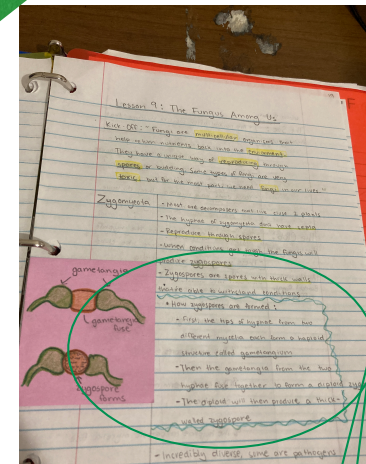 Lesson 9: The Fungus Among Us
Kick Off: "Fungi are multicellular organisms that
help return nutrients back into the environment.
They have a unique way of reproducing through
spores or budding. Some types of fungi are very
toxic, but for the most part, we need fungi in our lives."
Zygomycota - Most are decomposers and live close to plants
- The hyphae of zygomycota don't have septa
- Reproduce through spores
- When conditions get tough the fungus will
produce zygospores
- Zygospores are spores with thick walls
that're able to withstand conditions
gametangia
gametangia
fuse
zygospore
forms
• How zygospores are formed:
- First, the tips of hyphae from two
different mycelia each form a haploid
structure called gametangium
- Then the gametangia from the two
hyphae fuse together to form a diploid
- The diploid will then produce a thick-
walled zygospore
- Incredibly diverse, some are pathogens